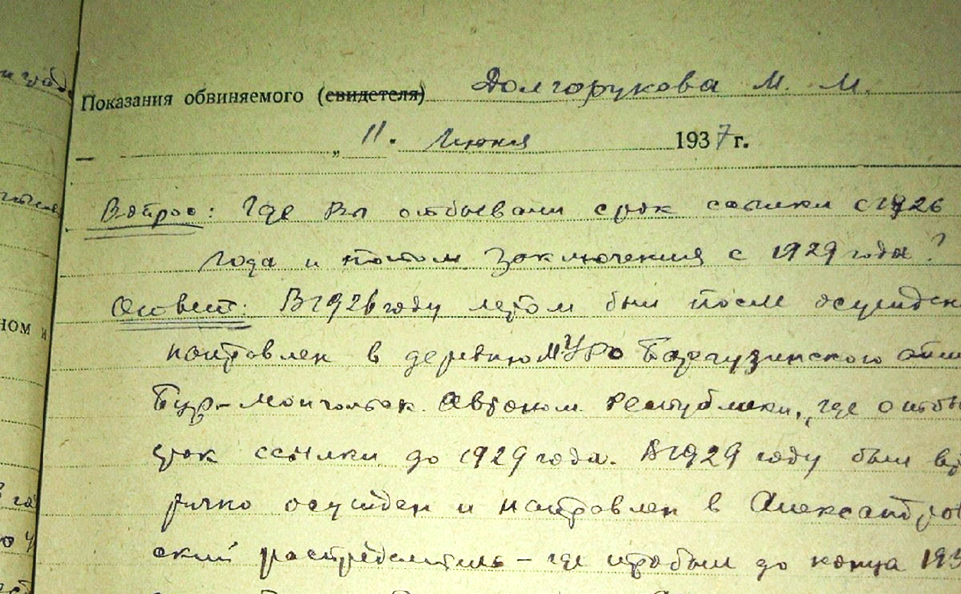 Показания обвиняемого (свидетеля) Долгорукова М. М.
„ 11. Июня 1937 г.
Вопрос: Где Вы отбывали срок ссылки с 1926
года и потом заключения с 1929 года?
Ответ: В 1926 году летом был после осужден
направлен в деревню Баргузинского айм
Бур-Монгольск. Автоном. Республики, где отбы
срок ссылки до 1929 года. В 1929 году был вто
рично осужден и направлен в Александров
ский распределитель – где пробыл до конца 193
ном и